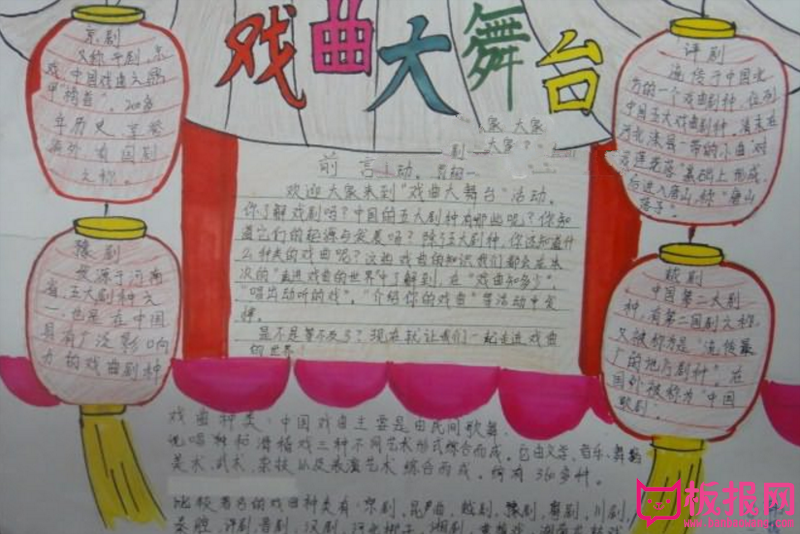 戏曲大舞台
京剧
又称平剧,京
戏,中国戏曲三鼎
甲"榜首",200多
年历史,享誉
海外,有国剧
之称。
豫剧
发源于河南
省,五大剧种之
一,也是在中国
具有广泛影响
力的戏曲剧种
家 大家
剧 大家?
前言
动。
欢迎大家来到"戏曲大舞台"活动。
你了解戏剧吗?中国的五大剧种有哪些呢?你知
道它们的起源与发展吗?除了五大剧种,你还知道什
么种类的戏曲呢?这些戏曲的知识我们都会在本
次的"走进戏曲的世界中了解到,在"戏曲知多少",
"唱出动听的戏"。"介绍你的戏曲"等活动中安
排。
是不是等不及了?现在就让我们一起走进戏曲
的世界!
评剧
流传于中国北
方的一个戏曲剧种,位列
中国五大戏曲剧种,清末在
河北滦县一带的小曲"对
口莲花落"基础上形成,
后进入唐山,称"唐山
落子"。
越剧
中国第二大剧
种,有第二国剧之称,
又被称为是"流传最
广的地方剧种",在
国外被称为"中国
歌剧。
戏曲种类:中国戏曲主要是由民间歌舞、
说唱和滑稽戏三种不同艺术形式综合而成。它由文学、音乐、舞蹈
美术、武术、杂技以及表演艺术综合而成,约有360多种。
比较著名的戏曲种类有:京剧,昆曲,越剧,豫剧,粤剧,川剧,
秦腔,评剧,晋剧,汉剧,河北梆子,湘剧,黄梅戏,湖南花鼓戏
板报网